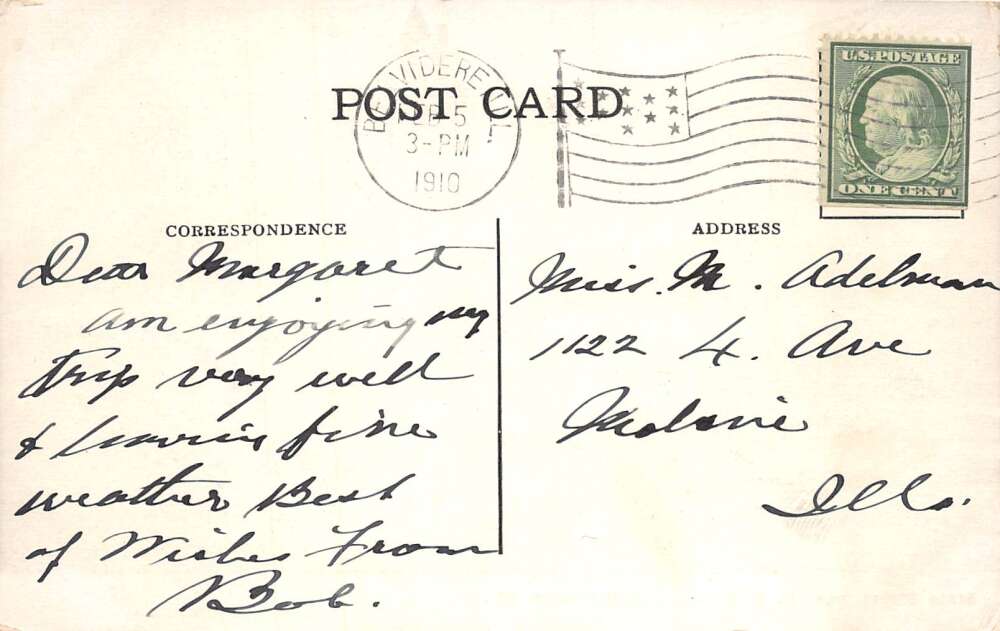 POST CARD
BELVIDERE ILL.
FEB 5
3-PM
1910
U.S. POSTAGE
ONE CENT
CORRESPONDENCE
Dear Margaret
am enjoying my
trip very well
& having fine
weather Best
of Wishes From
Bob.
ADDRESS
Miss. M. Adelman
1122 4. Ave
Moline
Ills.